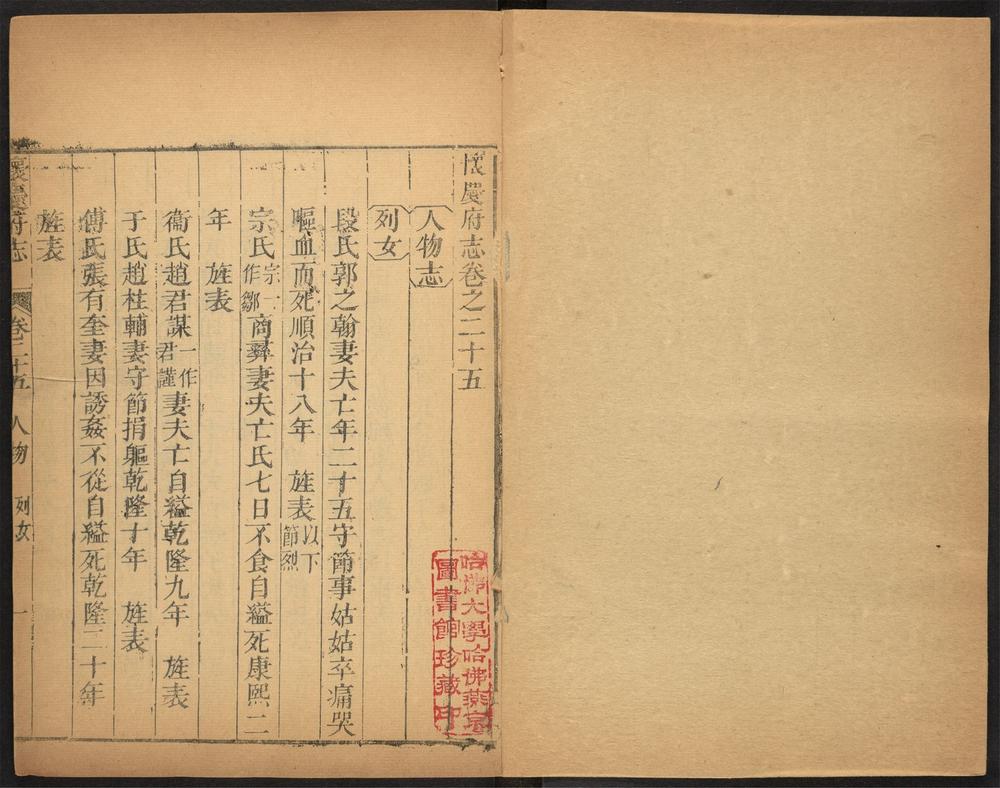 懷慶府志卷之二十五
人物志
列女
段氏郭之翰妻夫亡年二十五守節事姑姑卒痛哭
嘔血而死順治十八年　旌表以下節烈
宗氏宗一作鄒商彝妻夫亡氏七日不食自縊死康熙二
年　旌表
衞氏趙君謀一作君謹妻夫亡自縊乾隆九年　旌表
于氏趙柱輔妻守節捐軀乾隆十年　旌表
傅氏張有奎妻因誘姦不從自縊死乾隆二十年
旌表
懷慶府志　卷二十五　人物　列女　一
哈佛大學哈佛燕京
圖書館珍藏印